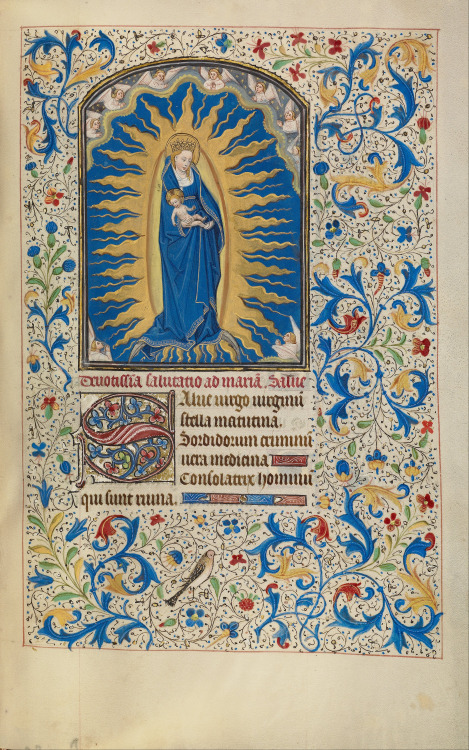 Devotissīa salutatio ad mariā. Salue
Salue uirgo uirginū
stella matutina.
Sordidorum criminū
uera medicina
Consolatrix hominū
qui sunt in ruina.